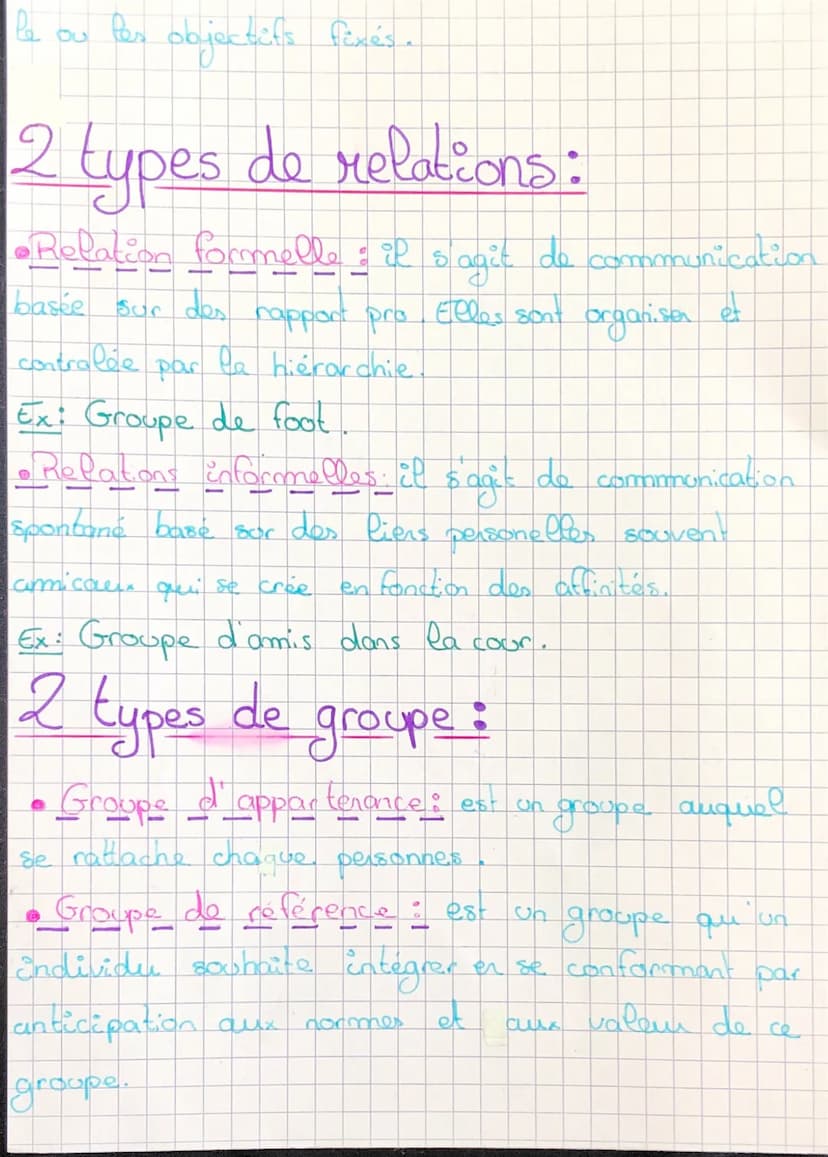 le ou les objectifs fixés.
2 types de relations :
• Relation formelle : il s'agit de communication
basée sur des rapport pro. Elles sont organiser et
contralée par la hiérarchie.
Ex : Groupe de foot.
• Relations informelles : il s'agit de communication
spontané basé sur des liens personelles souvent
amicaux qui se crée en fonction des affinités.
Ex : Groupe d'amis dans la cour.
2 types de groupe :
• Groupe d'appartenance : est un groupe auquel
se rattache chaque personnes.
• Groupe de référence : est un groupe qu'un
individu souhaite intégrer en se conformant par
anticipation aux normes et aux valeurs de ce
groupe.